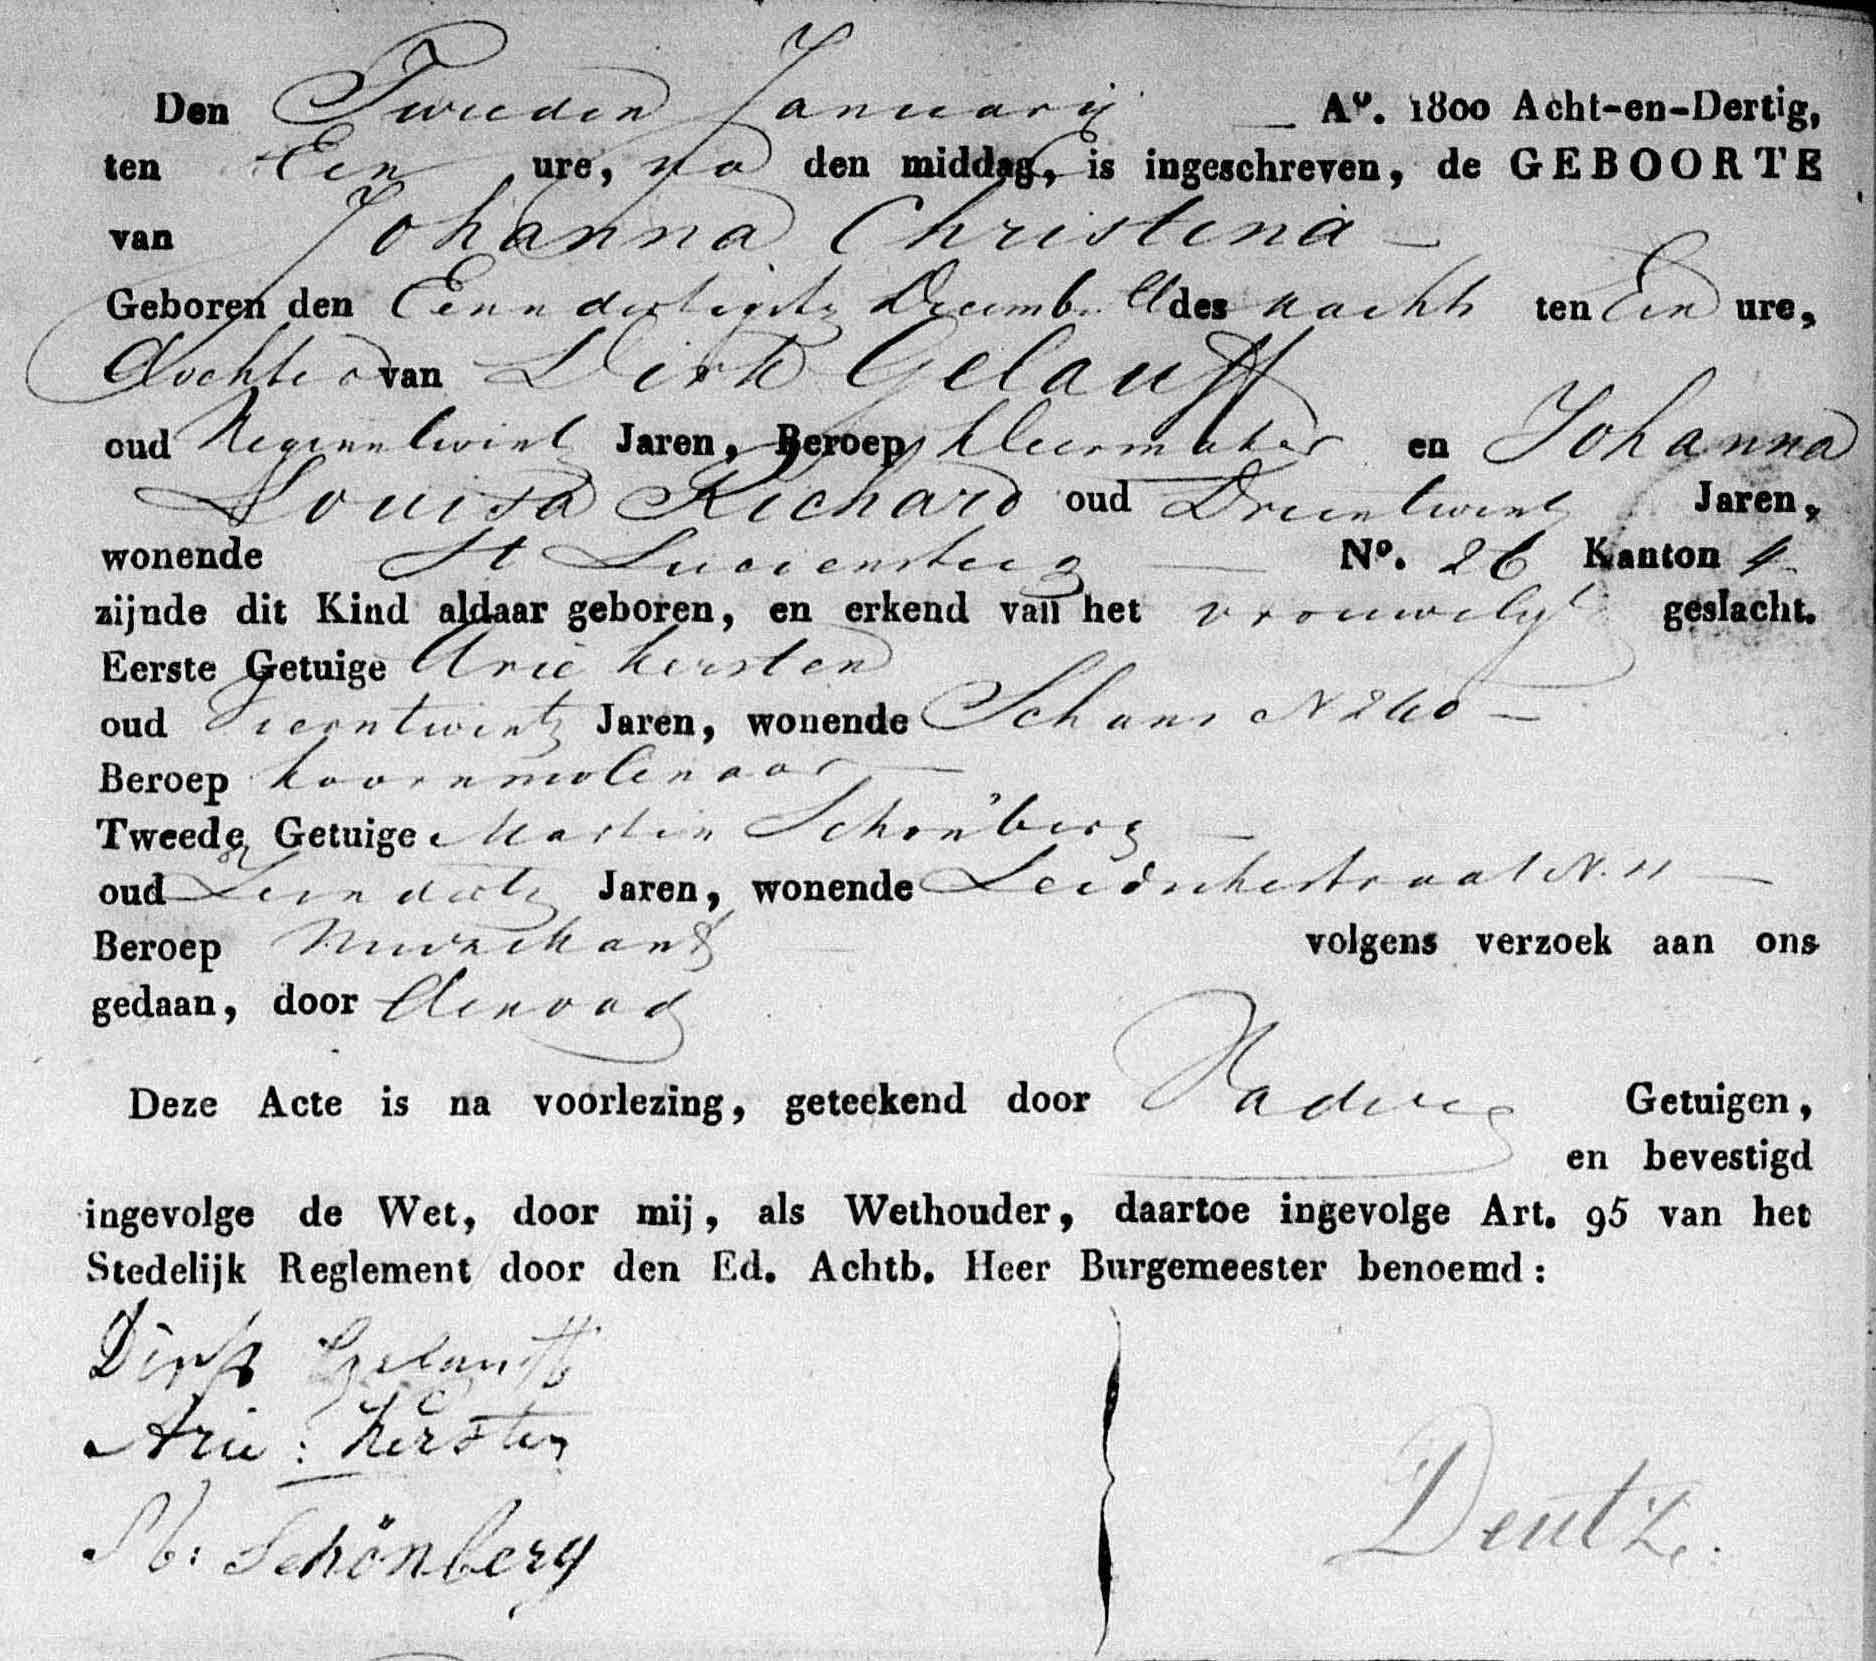 Den Tweeden Januarij — Aº. 1800 Acht-en-Dertig,
ten Een ure, na den middag, is ingeschreven, de GEBOORTE
van Johanna Christina —
Geboren den Eenendertigste Decemb. ll des nachts ten Een ure,
dochter van Dirk Gelauff
oud Negenentwintig Jaren, Beroep kleermaker en Johanna
Louisa Richard oud Drieentwintig Jaren,
wonende St Luciensteeg — Nº. 26 Kanton 4
zijnde dit Kind aldaar geboren, en erkend van het vrouwelijk geslacht.
Eerste Getuige Arie Kersten
oud Vierentwintig Jaren, wonende Schans N 240 —
Beroep koornmolenaar —
Tweede Getuige Martin Schönberg —
oud Jaren, wonende Leidschestraat N. 11 —
Beroep Muzikant
volgens verzoek aan ons
gedaan, door
Deze Acte is na voorlezing, geteekend door Getuigen,
en bevestigd
ingevolge de Wet, door mij, als Wethouder, daartoe ingevolge Art. 95 van het
Stedelijk Reglement door den Ed. Achtb. Heer Burgemeester benoemd:
Dirk Gelauff
Arie: Kersten
M: Schönberg
Deutz.